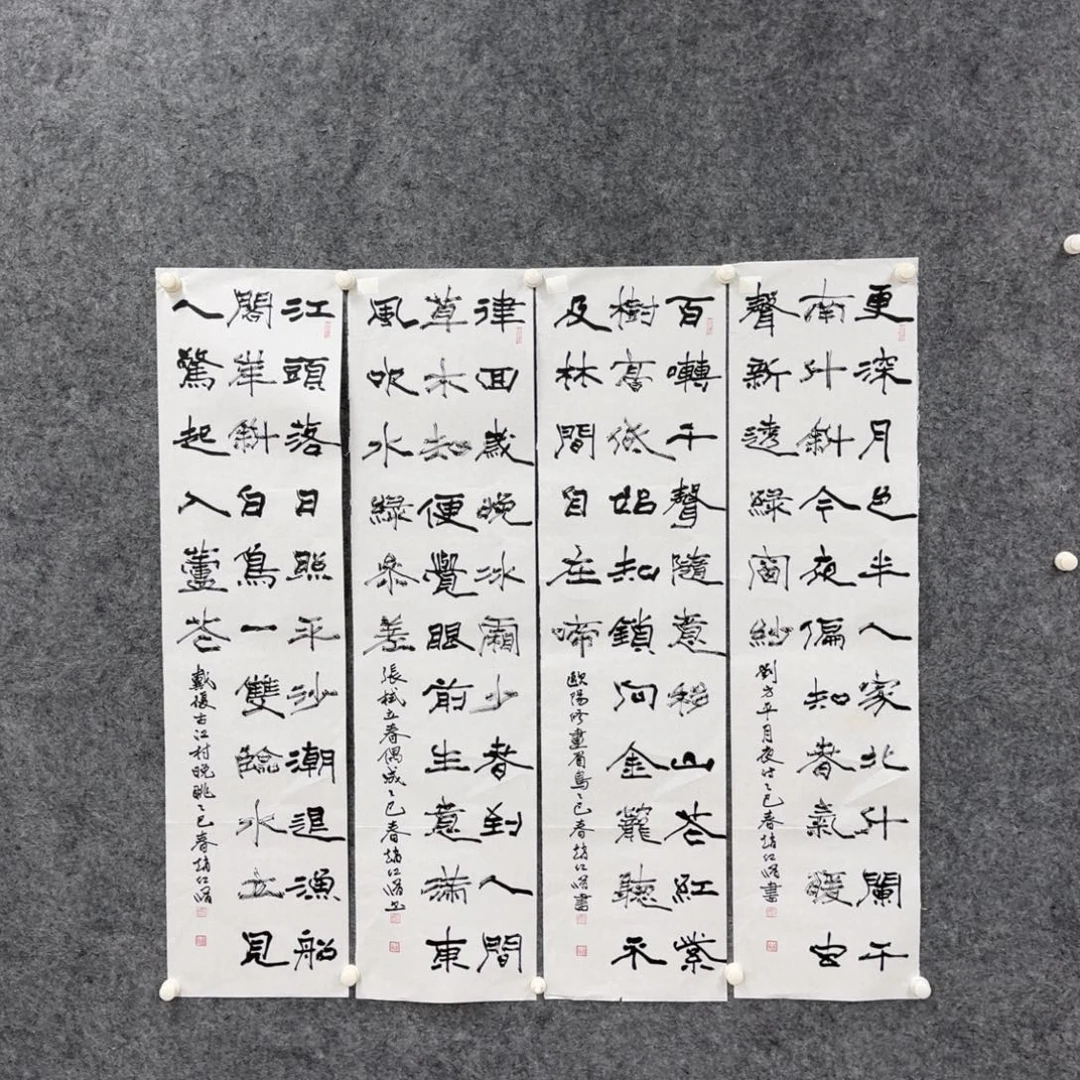 更深月色半人家北斗闌干
南斗斜今夜偏知春氣暖虫
聲新透綠窗紗
劉方平月夜詩乙巳春趙仁書
百囀千聲隨意移山花紅紫
樹高低始知鎖向金籠聽不
及林間自在啼
歐陽修畫眉鳥乙巳春趙仁書
律回歲晚冰霜少春到人間
草木知便覺眼前生意滿東
風吹水綠參差
張栻立春偶成乙巳春趙仁书
江頭落日照平沙潮退漁船
閣岸斜白鳥一雙臨水立見
人驚起入蘆花
戴復古江村晚眺乙巳春趙仁